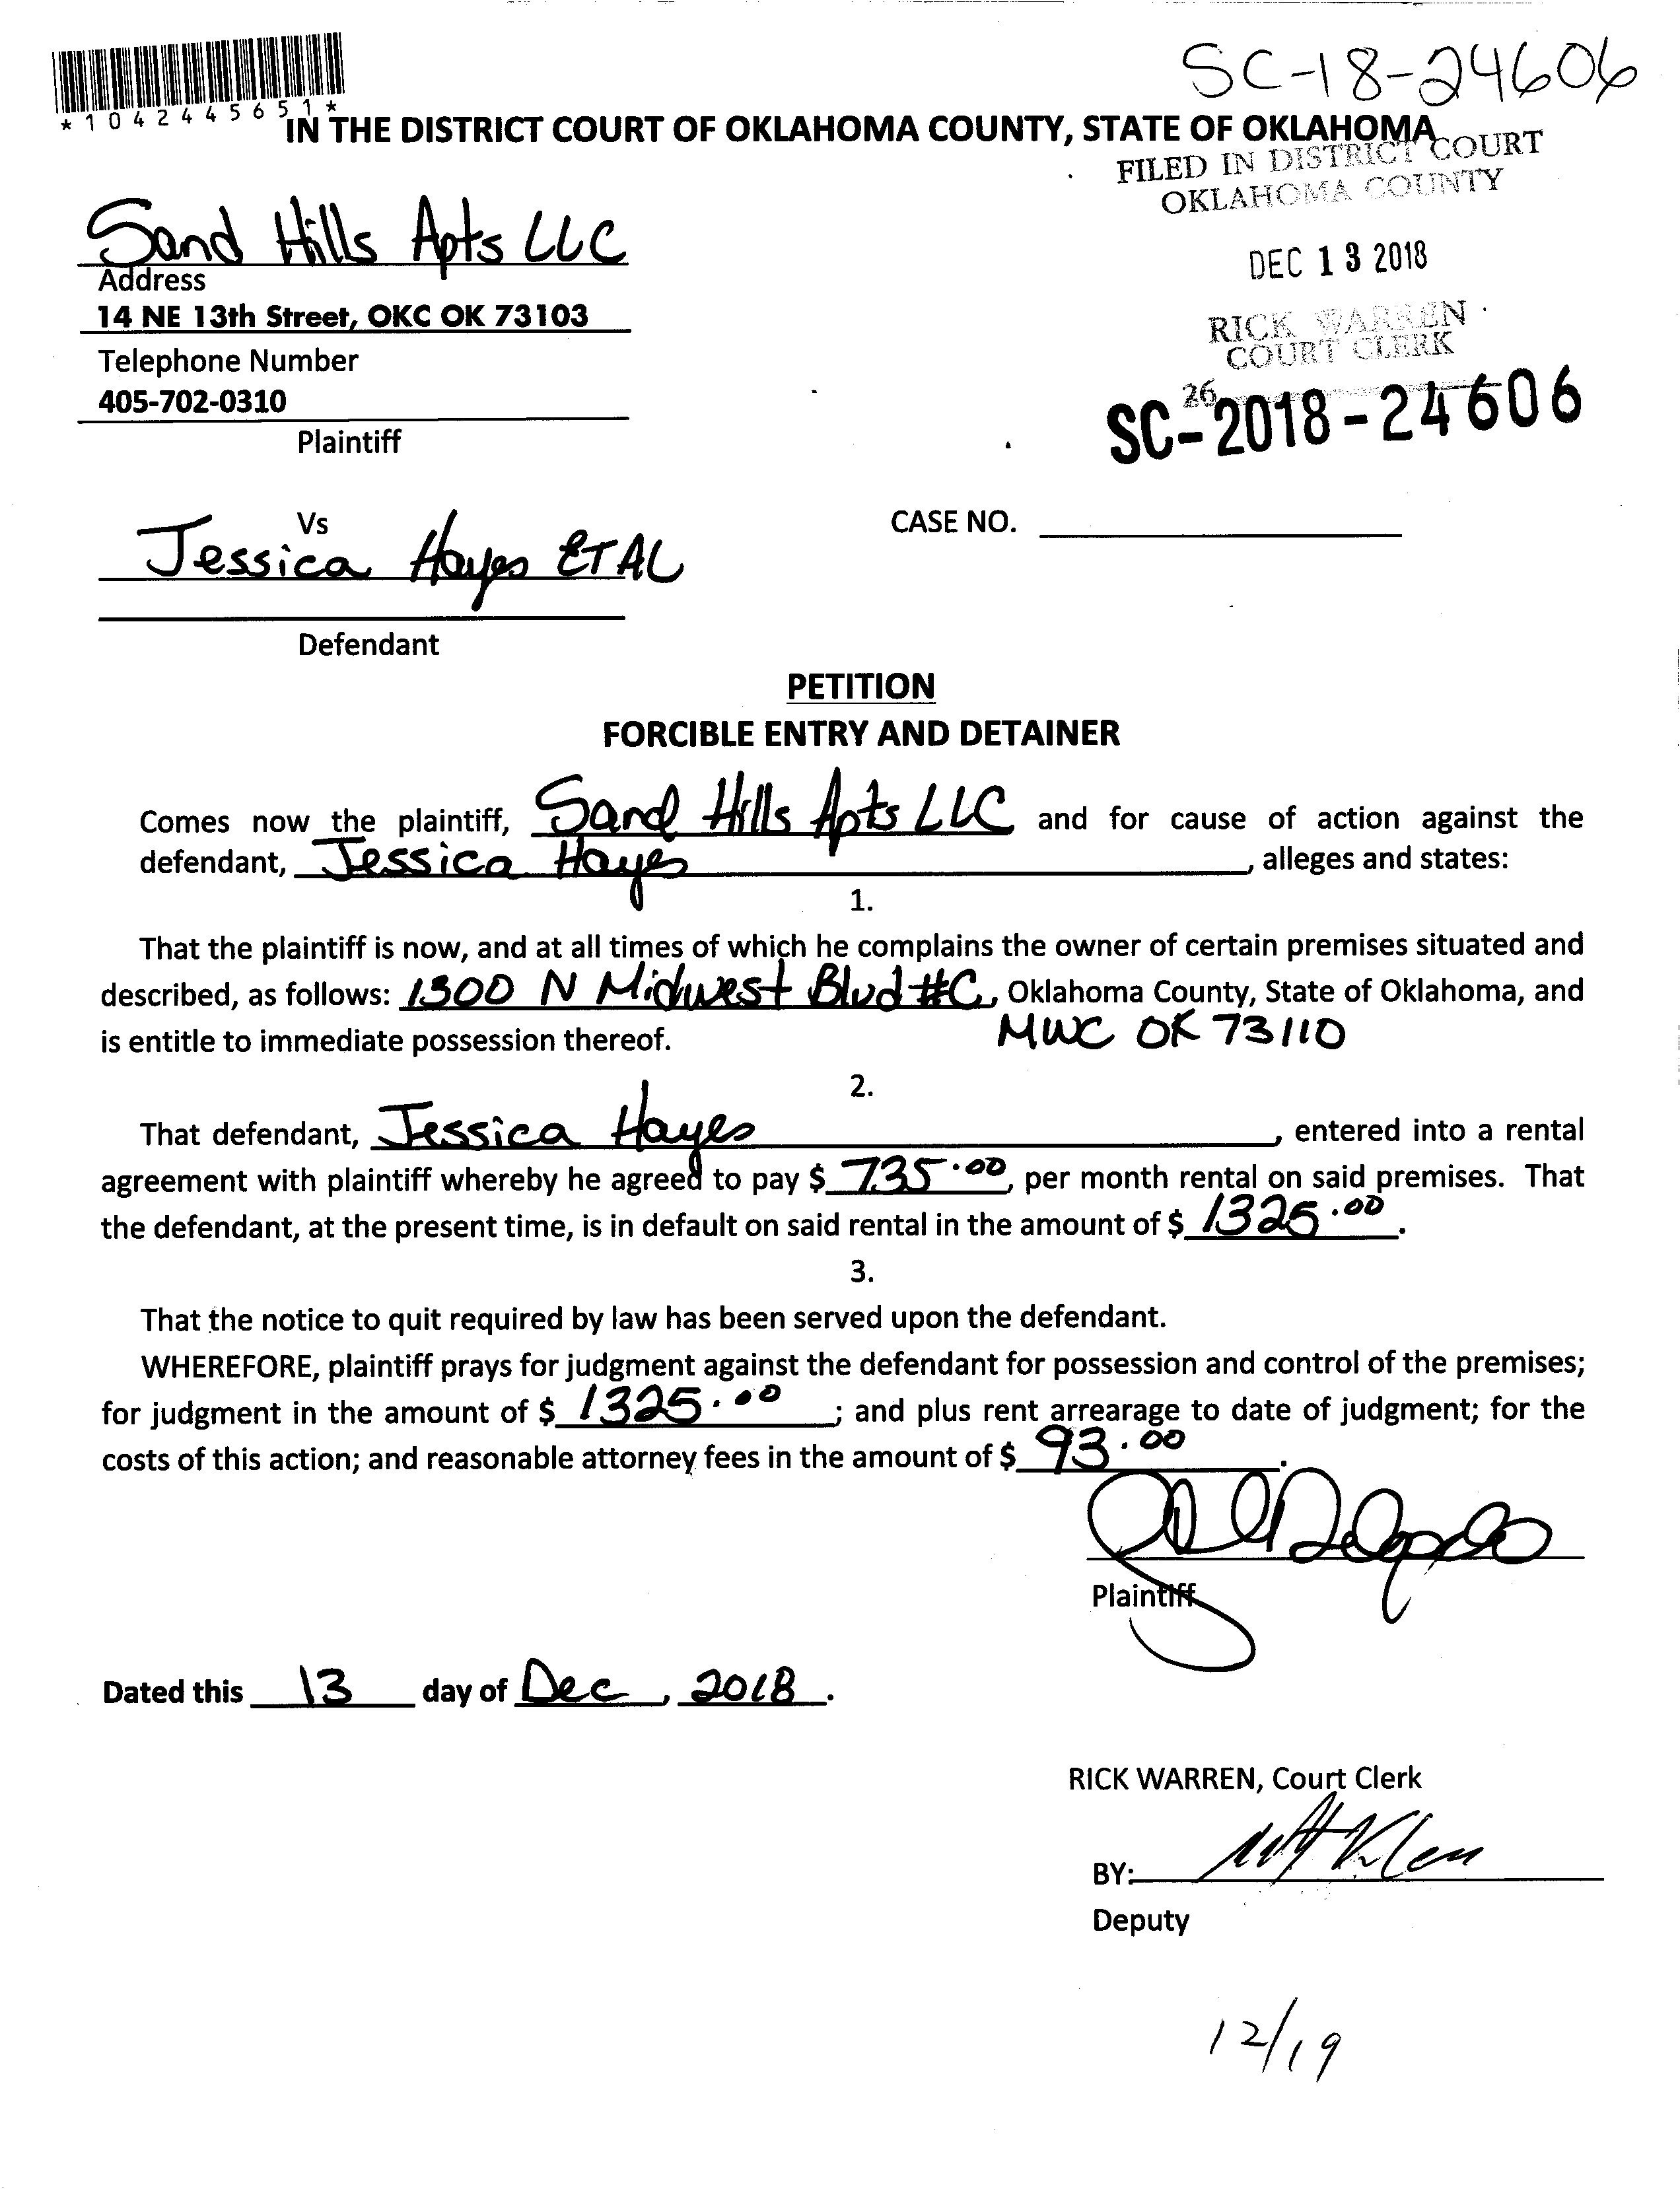 SC-18-24606
*1042445651*
IN THE DISTRICT COURT OF OKLAHOMA COUNTY, STATE OF OKLAHOMA
FILED IN DISTRICT COURT
OKLAHOMA COUNTY
Sand Hills Apts LLC
Address
DEC 13 2018
14 NE 13th Street, OKC OK 73103
RICK WARREN
COURT CLERK
Telephone Number
405-702-0310
26
SC-2018-24606
Plaintiff
Vs
CASE NO.
Jessica Hayes ETAL
Defendant
PETITION
FORCIBLE ENTRY AND DETAINER
Comes now the plaintiff, Sand Hills Apts LLC and for cause of action against the
defendant, Jessica Hayes, alleges and states:
1.
That the plaintiff is now, and at all times of which he complains the owner of certain premises situated and
described, as follows: 1300 N Midwest Blvd #C, Oklahoma County, State of Oklahoma, and
is entitle to immediate possession thereof. MWC OK 73110
2.
That defendant, Jessica Hayes, entered into a rental
agreement with plaintiff whereby he agreed to pay $ 735.00, per month rental on said premises. That
the defendant, at the present time, is in default on said rental in the amount of $ 1325.00.
3.
That the notice to quit required by law has been served upon the defendant.
WHEREFORE, plaintiff prays for judgment against the defendant for possession and control of the premises;
for judgment in the amount of $ 1325.00; and plus rent arrearage to date of judgment; for the
costs of this action; and reasonable attorney fees in the amount of $ 93.00.
Plaintiff
Dated this 13 day of Dec, 2018.
RICK WARREN, Court Clerk
BY:
Deputy
12/19